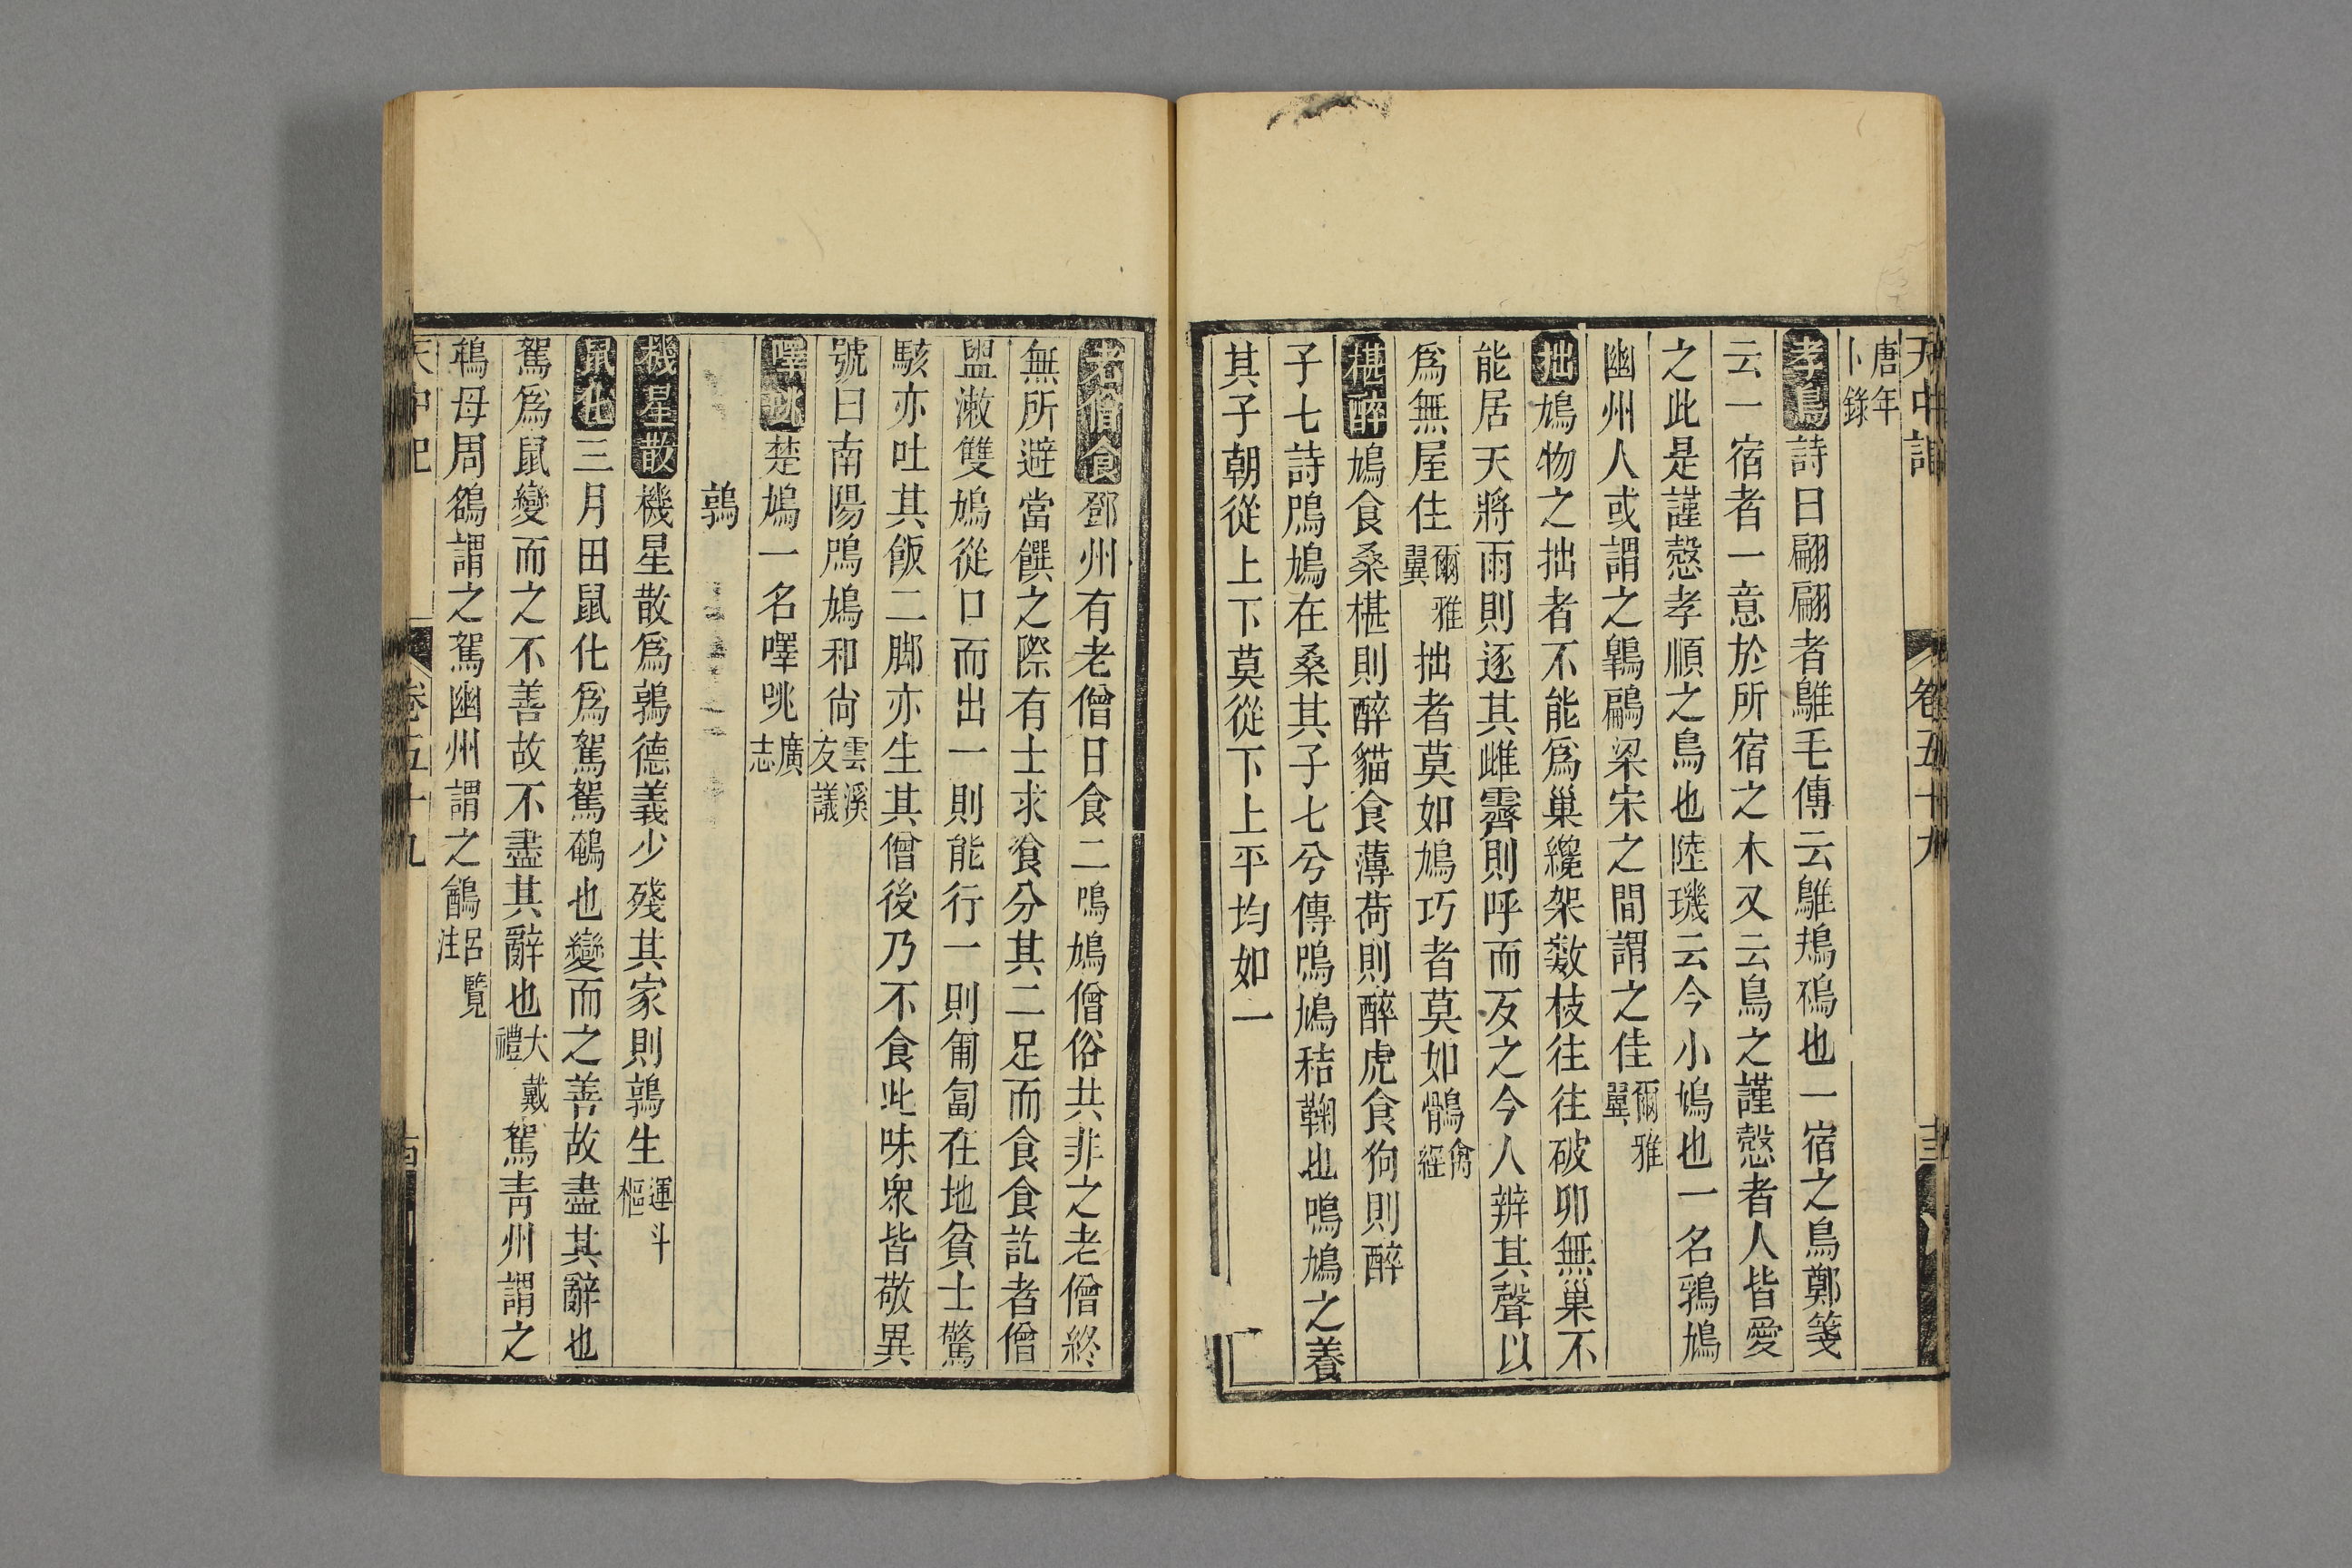 天中記 卷五十九
唐年
卜錄
孝鳥詩曰翩翩者鵻毛傳云鵻鳺鳪也一宿之鳥鄭箋
云一宿者一意於所宿之木又云鳥之謹慤者人皆愛
之此是謹慤孝順之鳥也陸璣云今小鳩也一名鶉鳩
幽州人或謂之鷝鷉梁宋之間謂之隹爾雅翼
拙鳩物之拙者不能爲巢纔架數枝往往破卵無巢不
能居天將雨則逐其雌霽則呼而反之今人辨其聲以
爲無屋住爾雅翼拙者莫如鳩巧者莫如鶻禽經
椹醉鳩食桑椹則醉貓食薄荷則醉虎食狗則醉
子七詩鳲鳩在桑其子七兮傳鳲鳩秸鞠也鳲鳩之養
其子朝從上下莫從下上平均如一
老僧食鄧州有老僧日食二鳲鳩僧俗共非之老僧終
無所避當饌之際有士求飡分其二足而食食訖者僧
盥漱雙鳩從口而出一則能行一則匍匐在地貧士驚
駭亦吐其飯二脚亦生其僧後乃不食此味衆皆敬異
號曰南陽鳲鳩和尚雲溪友議
嘷咷楚鳩一名嘷咷廣志
鶉
機星散機星散爲鶉德義少殘其家則鶉生運斗樞
鼠化三月田鼠化爲鴽鴽鵪也變而之善故盡其辭也
鴽爲鼠變而之不善故不盡其辭也大戴禮鴽靑州謂之
鴾母周雒謂之鴽幽州謂之鶕呂覽注
天中記 卷五十九